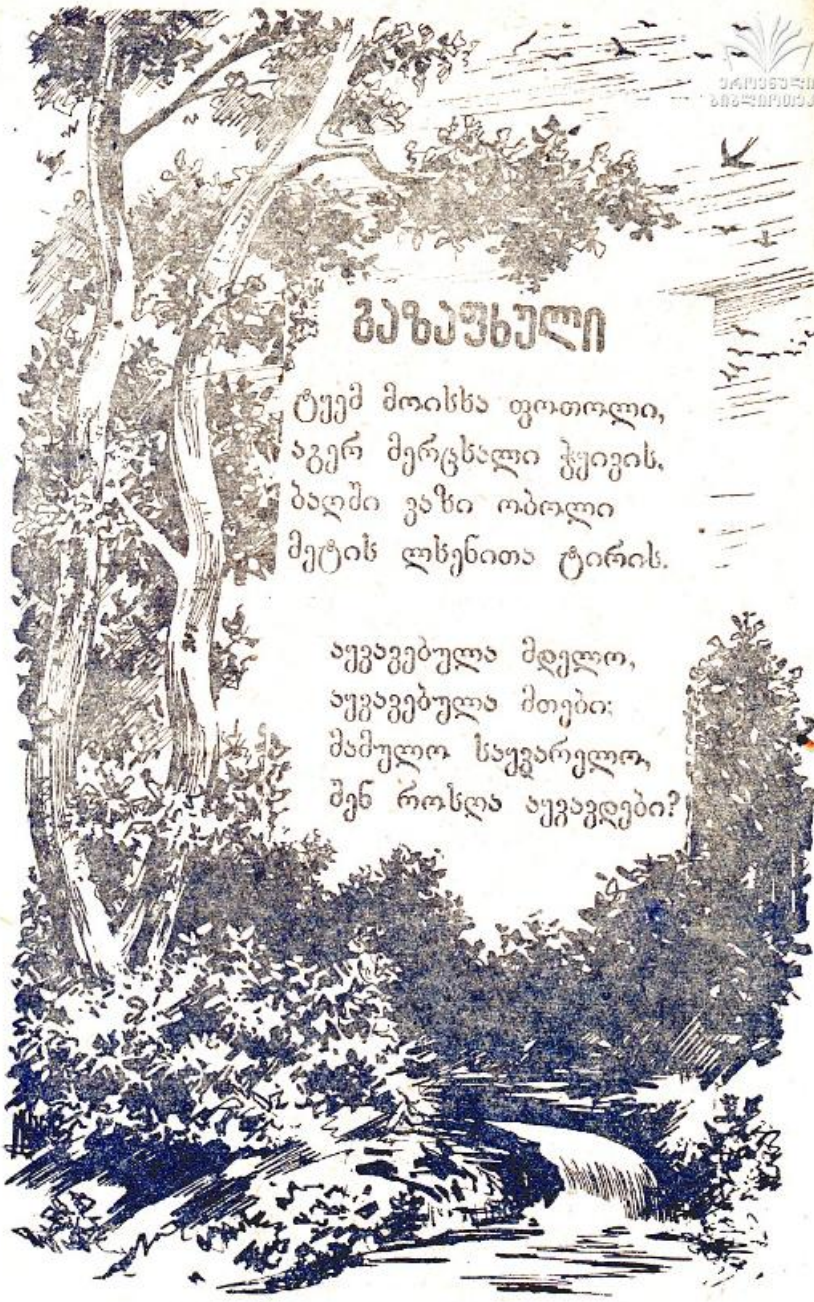 ეროვნული
ბიბლიოთეკა
გაზაფხული
ტყემ მოისხა ფოთოლი,
აგერ მერცხალი ჭყივის,
ბაღში ვაზი ობოლი
მეტის ლხენითა ტირის.
აყვავებულა მდელო,
აყვავებულა მთები;
მამულო საყვარელო,
შენ როსღა აყვავდები?